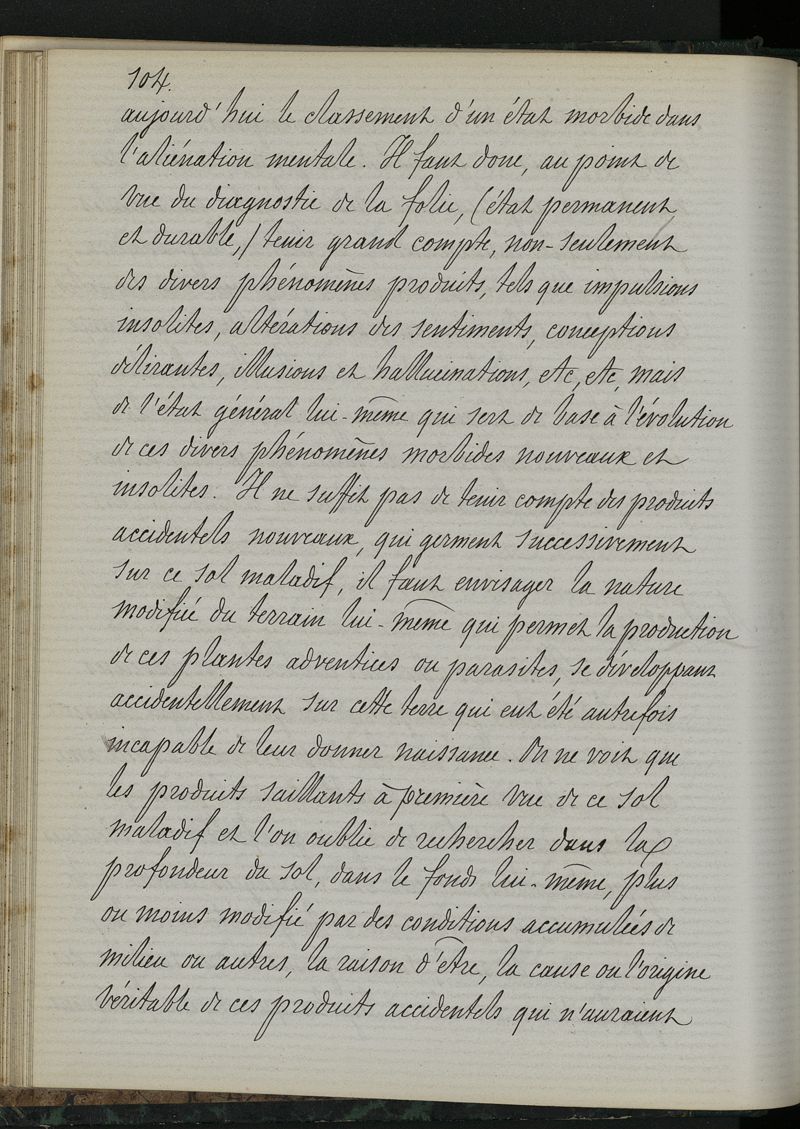 104.
aujourd'hui le classement d'un état morbide dans
l'aliénation mentale. Il faut donc, au point de
vue du diagnostic de la folie, (état permanent
et durable,) tenir grand compte, non-seulement
des divers phénomènes produits, tels que impulsions
insolites, altérations des sentiments, conceptions
délirantes, illusions et hallucinations, etc, etc, mais
de l'état général lui-même qui sert de base à l'évolution
de ces divers phénomènes morbides nouveaux et
insolites. Il ne suffit pas de tenir compte des produits
accidentels nouveaux, qui germent successivement
sur ce sol maladif, il faut envisager la nature
modifiée du terrain lui-même qui permet la production
de ces plantes adventices ou parasites, se développant
accidentellement sur cette terre qui eut été autrefois
incapable de leur donner naissance. On ne voit que
les produits saillants à première vue de ce sol
maladif et l'on oublie de rechercher dans la
profondeur du sol, dans le fonds lui-même, plus
ou moins modifié par des conditions accumulées de
milieu ou autres, la raison d'être, la cause ou l'origine
véritable de ces produits accidentels qui n'auraient